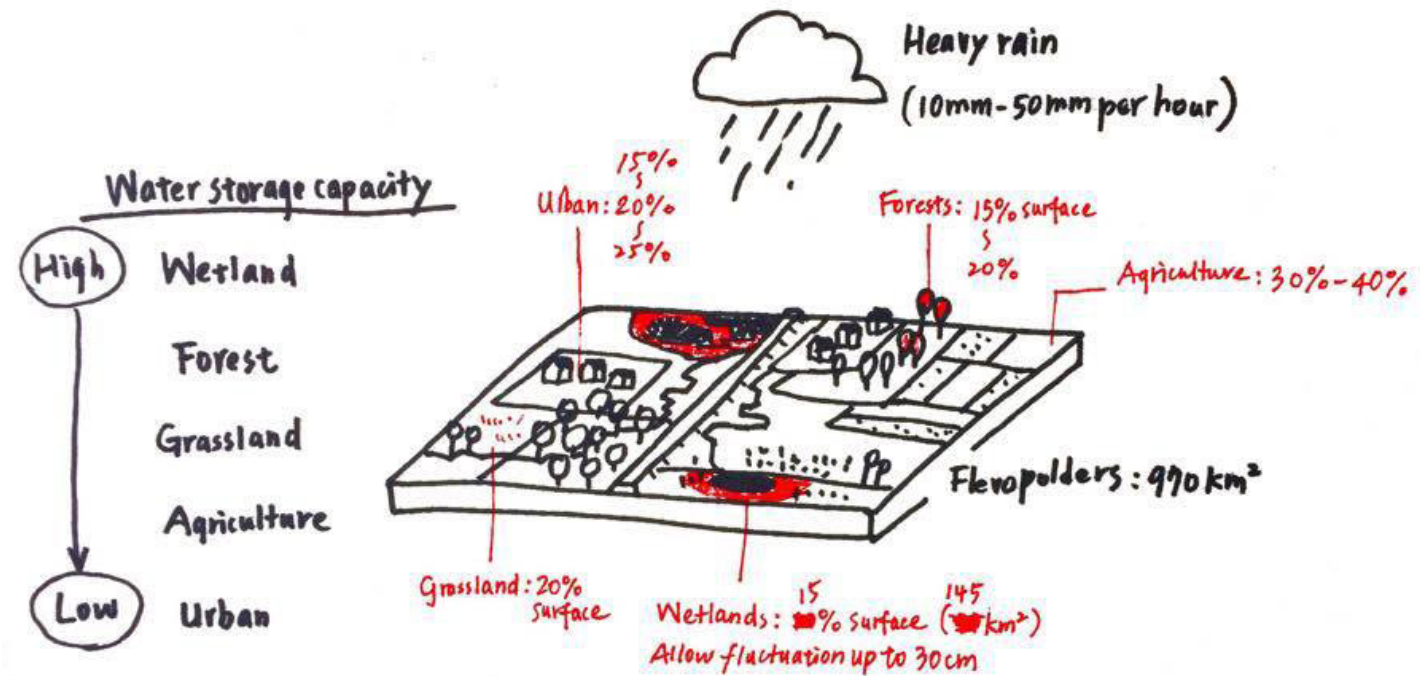 Heavy rain
(10mm-50mm per hour)
Water storage capacity
High
Wetland
Forest
Grassland
Agriculture
Low
Urban
15%
Urban: 20%
25%
Forests: 15% surface
20%
Agriculture: 30%-40%
Flevopolders: 970 km²
Grassland: 20%
surface
15 145
Wetlands: % surface ( km²)
Allow fluctuation up to 30cm